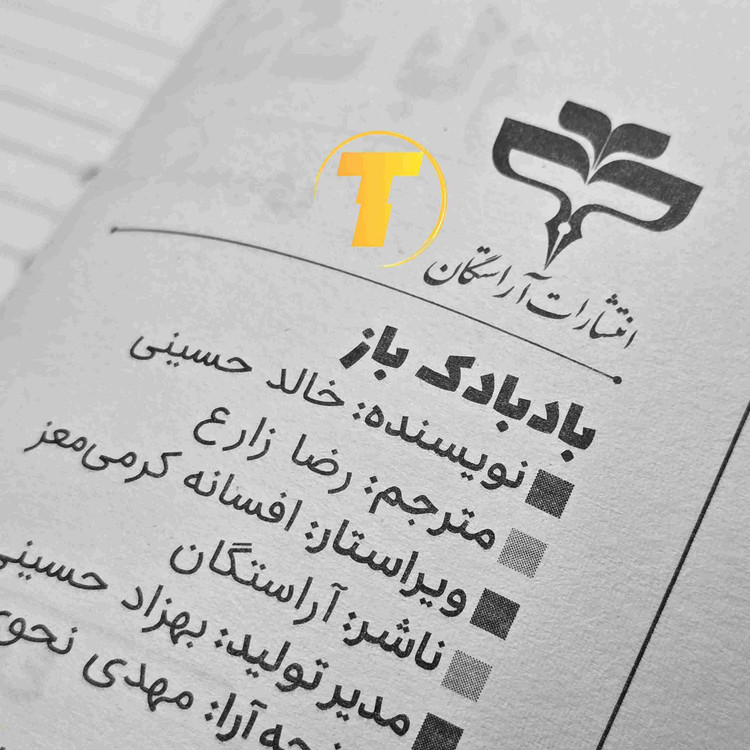 T
انتشارات آراستگان
بادبادک باز
نویسنده: خالد حسینی
مترجم: رضا زارع
ویراستار: افسانه کرمی‌معز
ناشر: آراستگان
مدیر تولید: بهزاد حسینی
مهدی نحوی